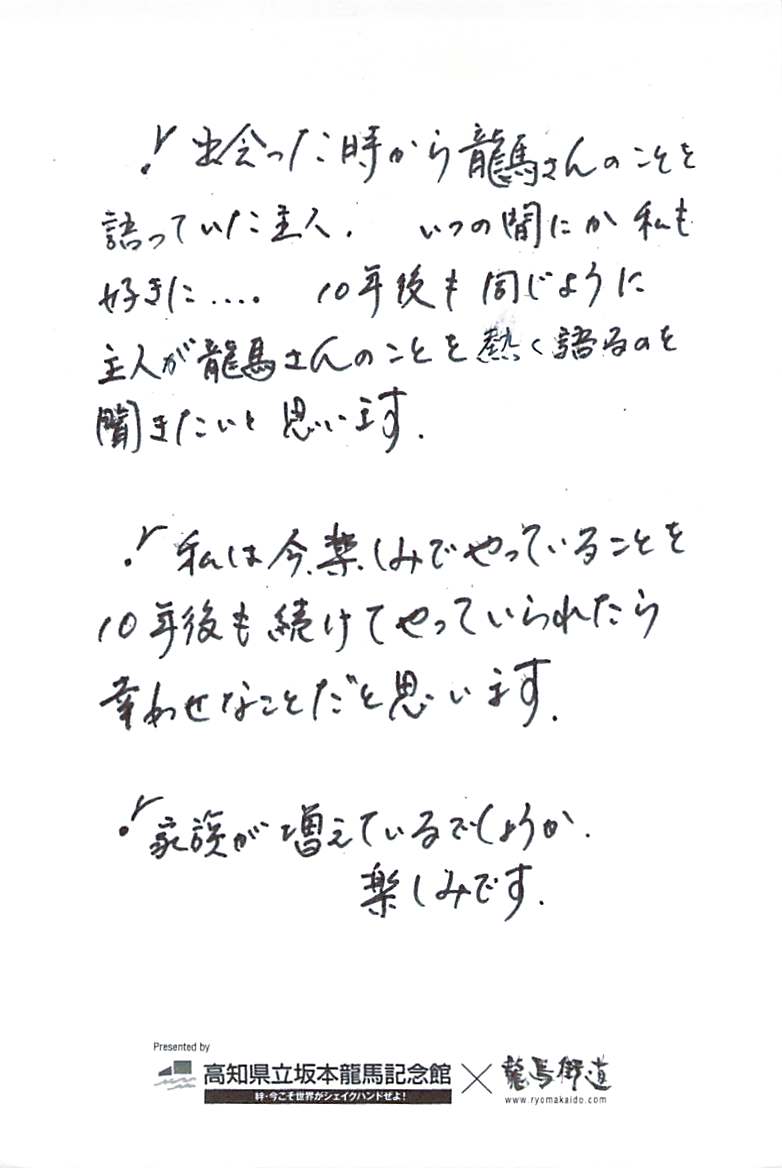 ! 出会った時から龍馬さんのことを
語っていた主人. いつの間にか私も
好きに.... 10年後も同じように
主人が龍馬さんのことを熱く語るのを
聞きたいと思います.
! 私は今、楽しみでやっていることを
10年後も続けてやっていられたら
幸わせなことだと思います.
! 家族が増えているでしょうか.
楽しみです.
Presented by
高知県立坂本龍馬記念館 × 龍馬街道
絆・今こそ世界がシェイクハンドぜよ!
www.ryomakaido.com